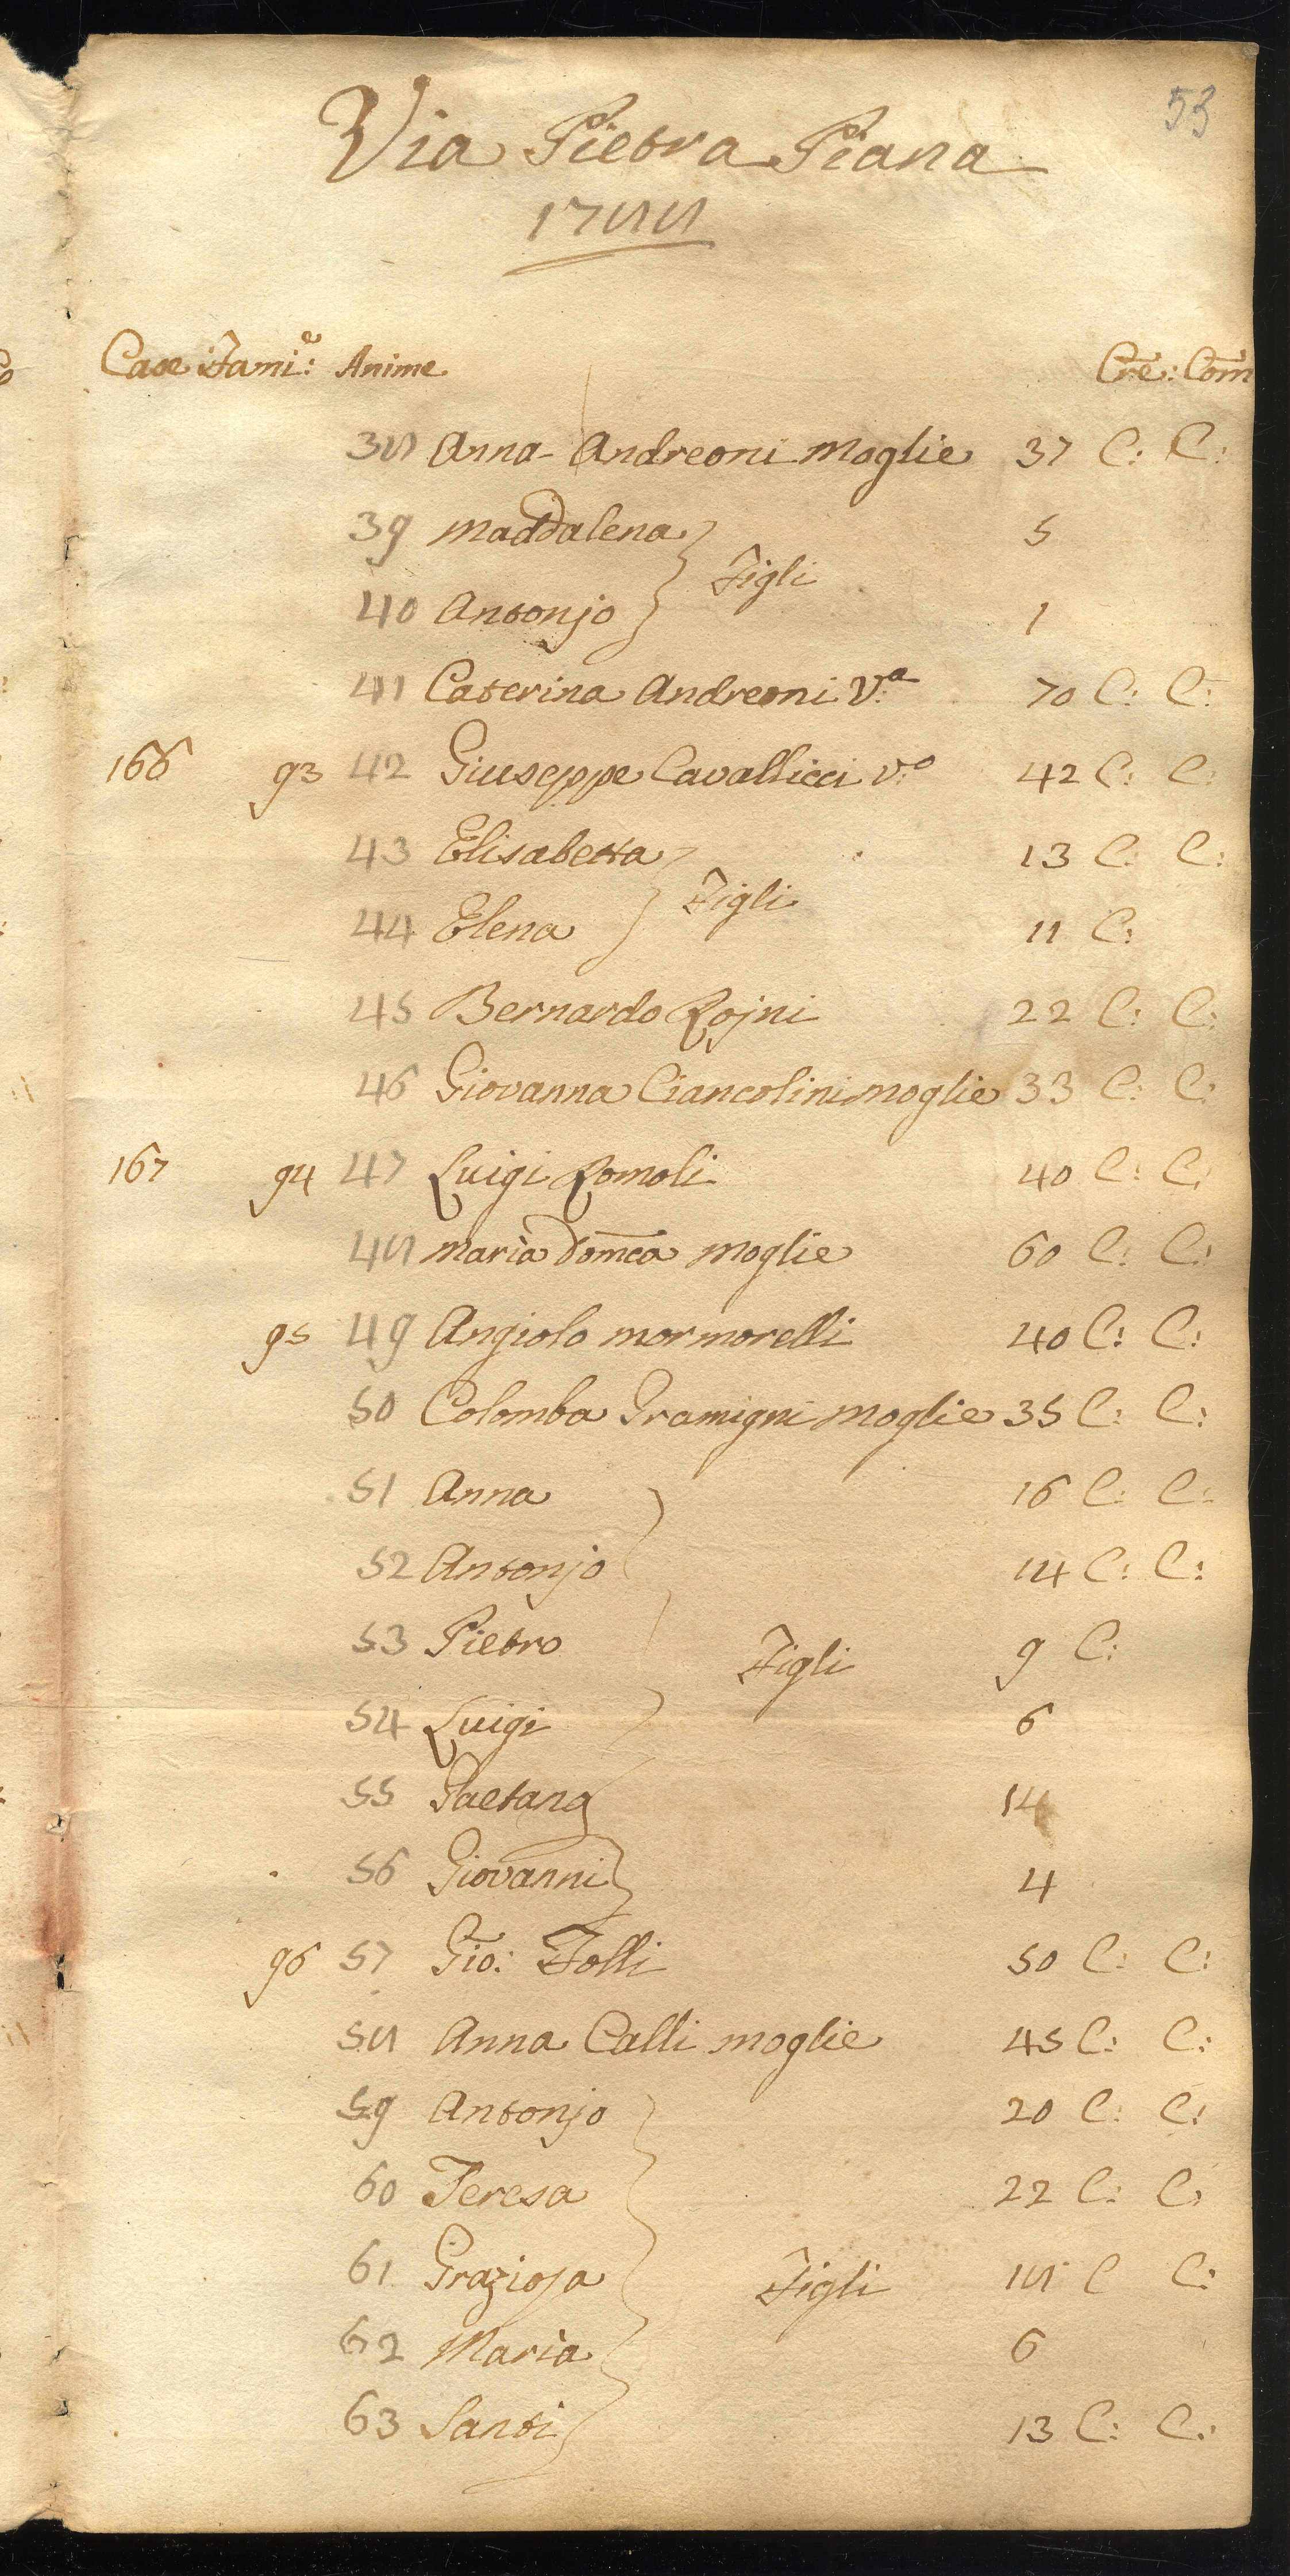 53
Via Pietra Piana
1788
Case Fami.e: Anime Cre: Com
38 Anna Andreoni Moglie 37 C: C:
39 Maddalena 5
Figli
40 Antonjo 1
41 Caterina Andreoni V.a 70 C: C:
166 93 42 Giuseppe Cavallicci v.o 42 C: C:
43 Elisabetta 13 C: C:
Figli
44 Elena 11 C:
45 Bernardo Rojni 22 C: C:
46 Giovanna Ciancolini moglie 33 C: C:
167 94 47 Luigi Romoli 40 C: C:
48 Maria Domca moglie 60 C: C:
95 49 Angiolo mormorelli 40 C: C:
50 Colomba Gramigni moglie 35 C: C:
51 Anna 16 C: C:
52 Antonjo 14 C: C:
53 Pietro Figli 9 C:
54 Luigi 6
55 Gaetana 14
56 Giovanni 4
96 57 Gio: Folli 50 C: C:
58 Anna Calli moglie 45 C: C:
59 Antonjo 20 C: C:
60 Teresa 22 C: C:
61 Grazioja Figli 18 C C:
62 Maria 6
63 Santi 13 C: C: